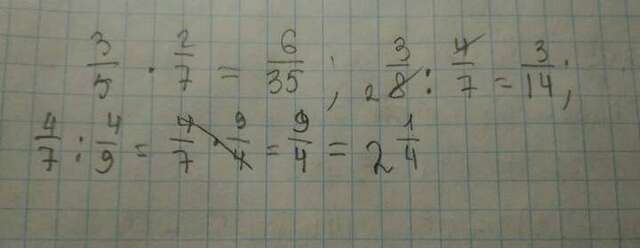 3/5 · 2/7 = 6/35 ; 3/8 2 : 4/7 = 3/14 ;
4/7 : 4/9 = 4/7 · 9/4 = 9/4 = 2 1/4